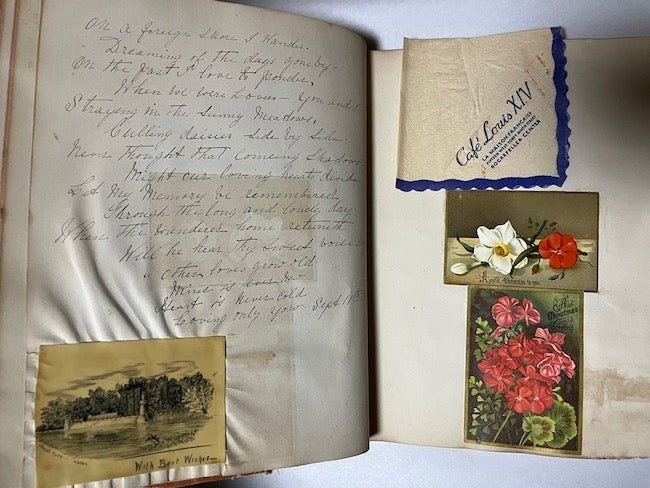 On a foreign Shore I Wander.
Dreaming of the days gone by-
On the Past I love to Ponder,
When we were Loves- You and I
Straying in the Sunny Meadows,
Culling daisies side by side.
Never Thought that comeing Shadows
Might our loving hearts divide
Let My Memory be remembered
Through the long and lonely day
When the Wanderer home returneth
Will he hear thy sweet voice
" Other loves grow old
Mine is
Heart is Never Cold
Loving only your- Sept 11th
With Best Wishes-
Café Louis XIV
LA MAISON FRANÇAISE
ROCKEFELLER CENTER
A joyful Christmas to you.
Christmas